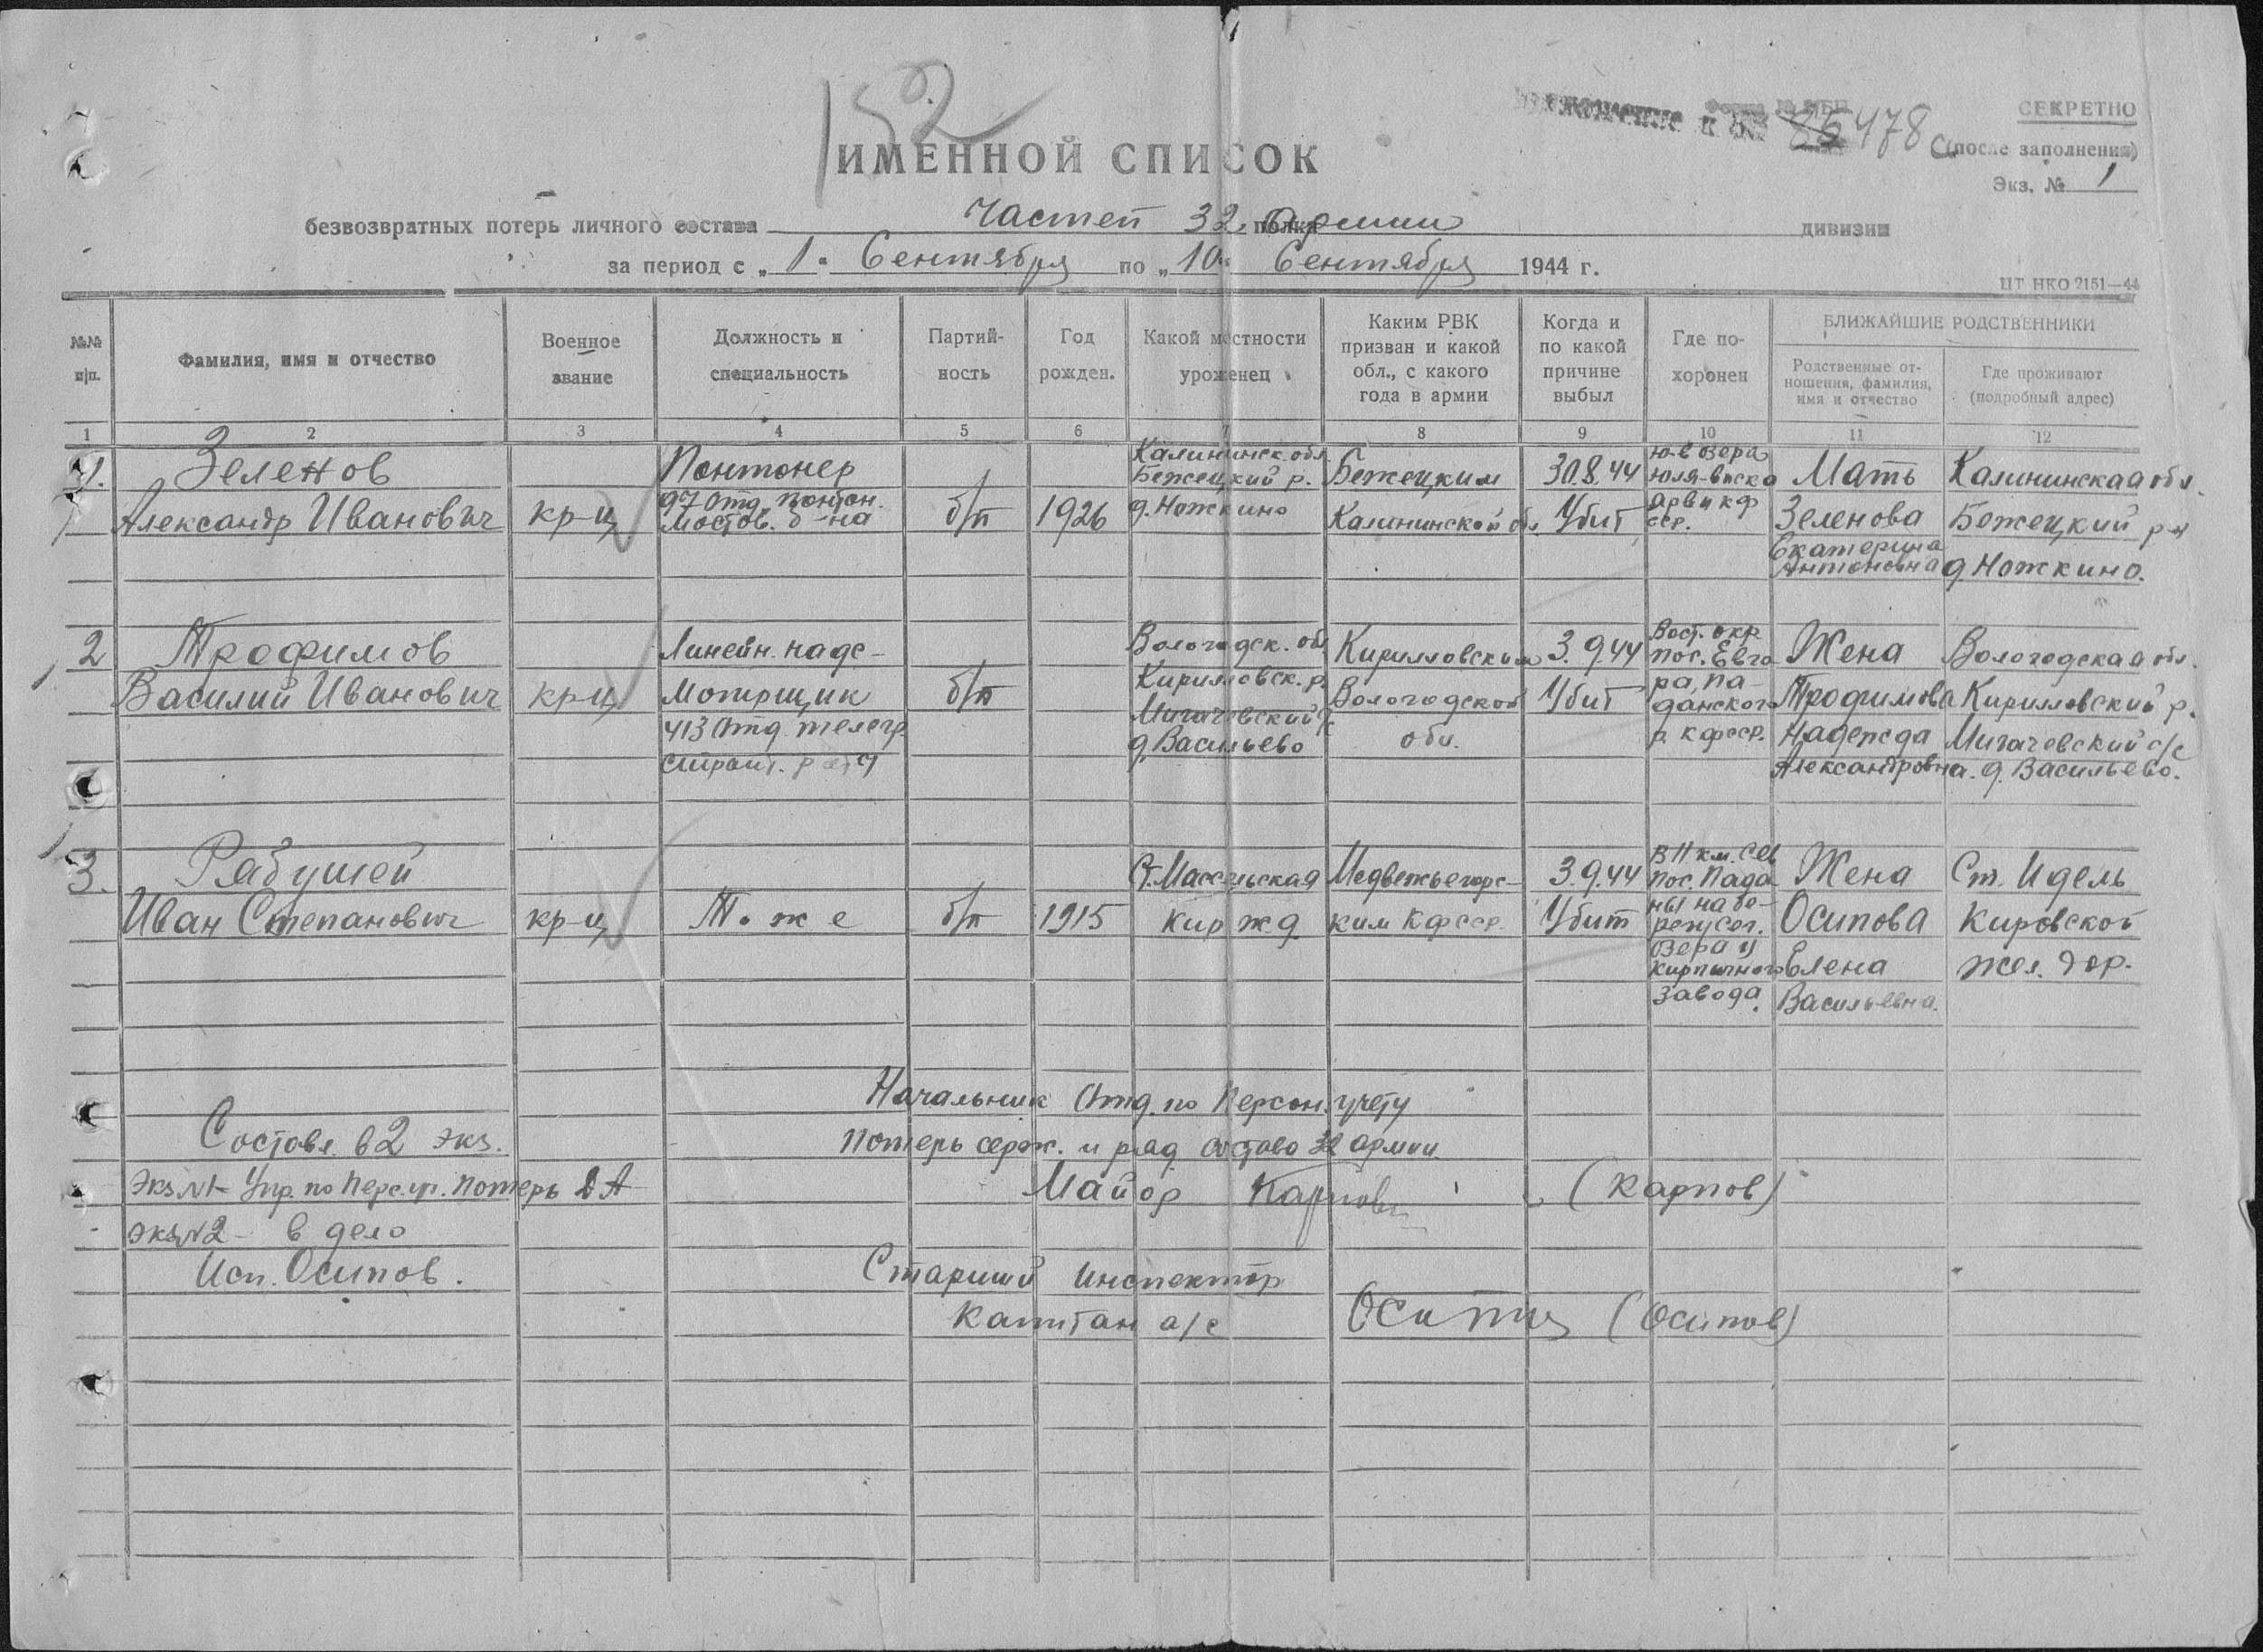 152
Форма № 2/БП
СЕКРЕТНО
85478с
(после заполнения)
Экз. № 1
ИМЕННОЙ СПИСОК
безвозвратных потерь личного состава Частей 32 полка Армии дивизии
за период с „1" Сентября по „10" Сентября 1944 г.
ЦТ НКО 2151—44
№№ п|п.
Фамилия, имя и отчество
Военное звание
Должность и специальность
Партий-
ность
Год рожден.
Какой местности уроженец
Каким РВК
призван и какой
обл., с какого
года в армии
Когда и
по какой
причине
выбыл
Где по-
хоронен
БЛИЖАЙШИЕ РОДСТВЕННИКИ
Родственные от-
ношения, фамилия,
имя и отчество
Где проживают
(подробный адрес)
1 2 3 4 5 6 7 8 9 10 11 12
1. Зеленов
Александр Иванович
кр-ц
Понтонер
97 отд. понтон.
мостов. б-на
б/п
1926
Калининск. обл.
Бежецкий р.
д. Ножкино
Бежецким
Калининской обл.
30.8.44
Убит
ю-в озера
Юля-
КФ
ССР.
Мать
Зеленова
Екатерина
Антоновна
Калининская обл.
Бежецкий р-н
д. Ножкино.
2 Трофимов
Василий Иванович
кр-ц
Линейн. надс-
мотрщик
413 отд. телегр.
строит. рота
б/п
Вологодск. обл
Кирилловск. р.
Мигачевский с/с
д. Васильево
Кирилловским
Вологодской
обл.
3.9.44
Убит
Вост. окр
пос. Евго
ра, Па-
данского
р. КФССР.
Жена
Трофимова
Надежда
Александровна.
Вологодская обл.
Кирилловский р.
Мигачевский с/с
д. Васильево.
3. Рябушей
Иван Степанович
кр-ц
То же
б/п
1915
Ст. Массельская
Кир ж д
Медвежьегорс-
ким КФССР.
3.9.44
Убит
в 11 км. сев
пос. Пада-
ны на бе-
регу Сег.
озера у
кирпичного
завода.
Жена
Осипова
Елена
Васильевна.
Ст. Идель
Кировской
жел. дор.
Начальник Отд. по Персон. учету
потерь серж. и ряд. состава 32 армии
Майор Карпов (Карпов)
Составл. в 2 экз.
Экз №1- Упр. по перс. уч. потерь ДА
экз №2- в дело
Исп. Осипов.
Старший инспектор
Капитан а/с Осипов (Осипов)